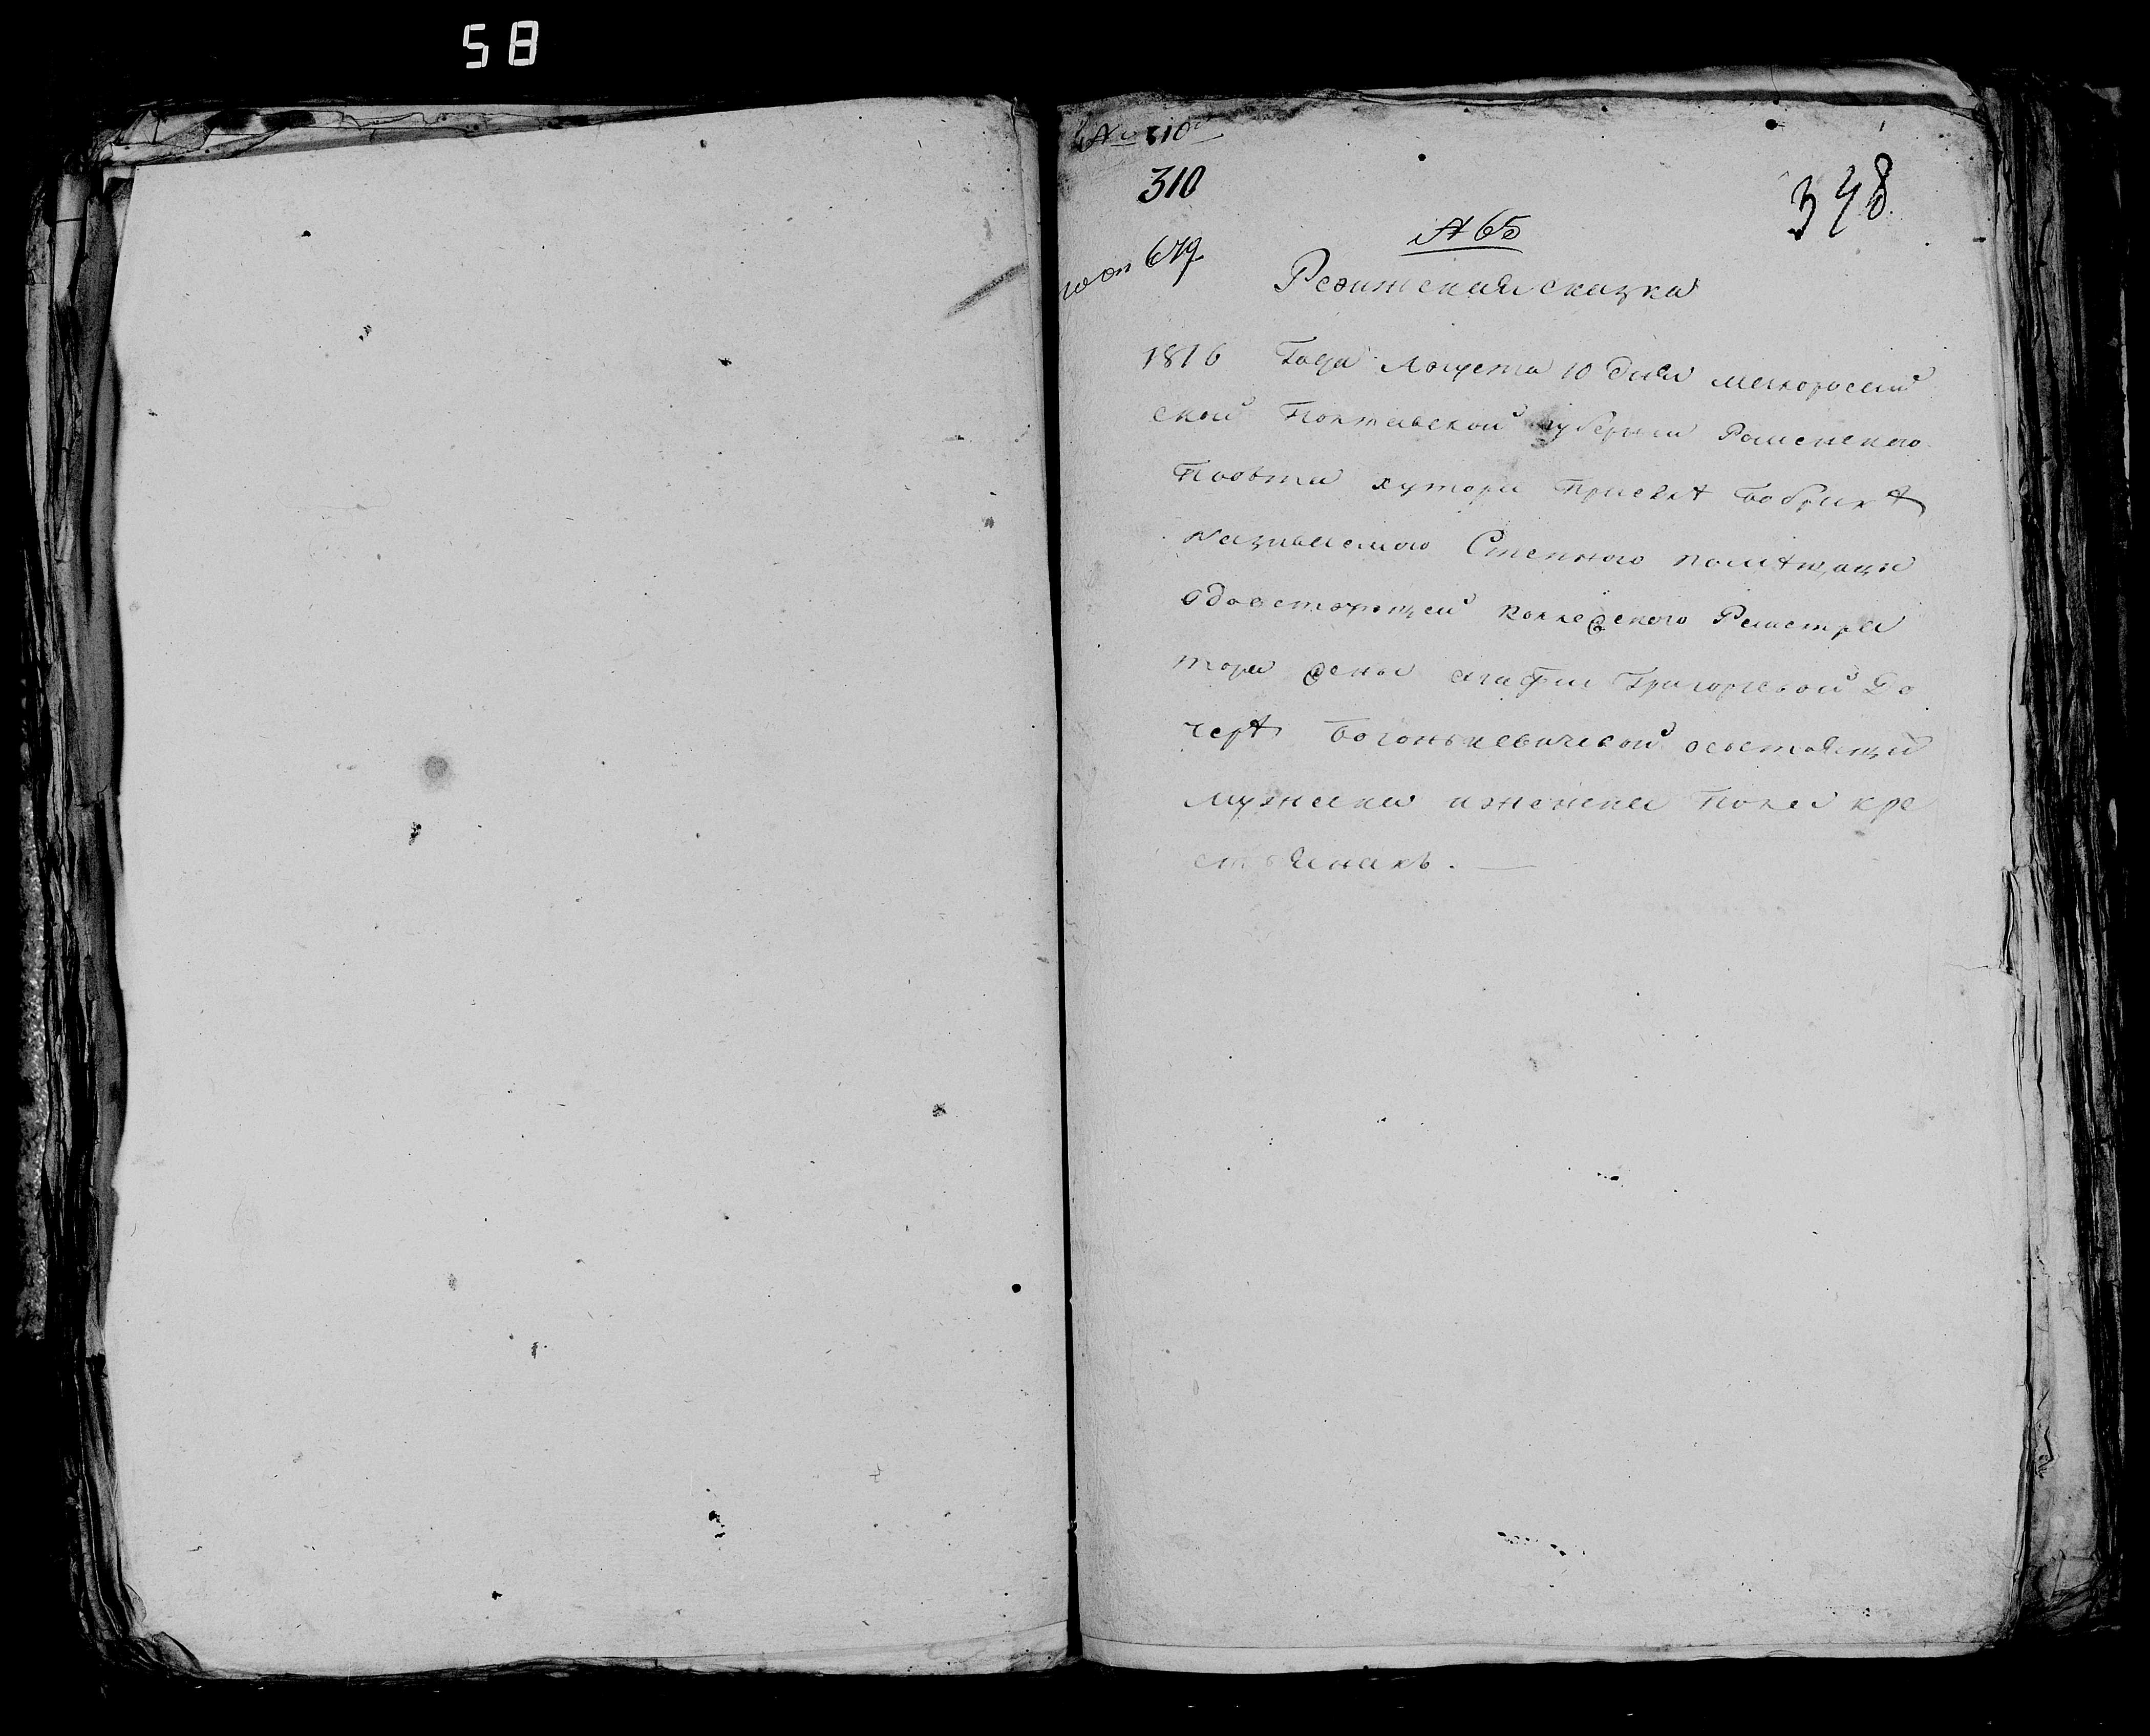 58
№ 310
310
348
679
№ 65
Ревижская сказка
1816 Года Августа 10 дня малоросий
ской Полтавской губернии Роменского
Повѣта хутора Присѣлѣ Бобрикѣ
называемого Степного помѣщицы
вдовствующей коллежского Регистра
тора жены Агафии Григориевой До
черѣ Богоньковичевой осостоящих
мужеска иженска Пола кре
стьянахъ.